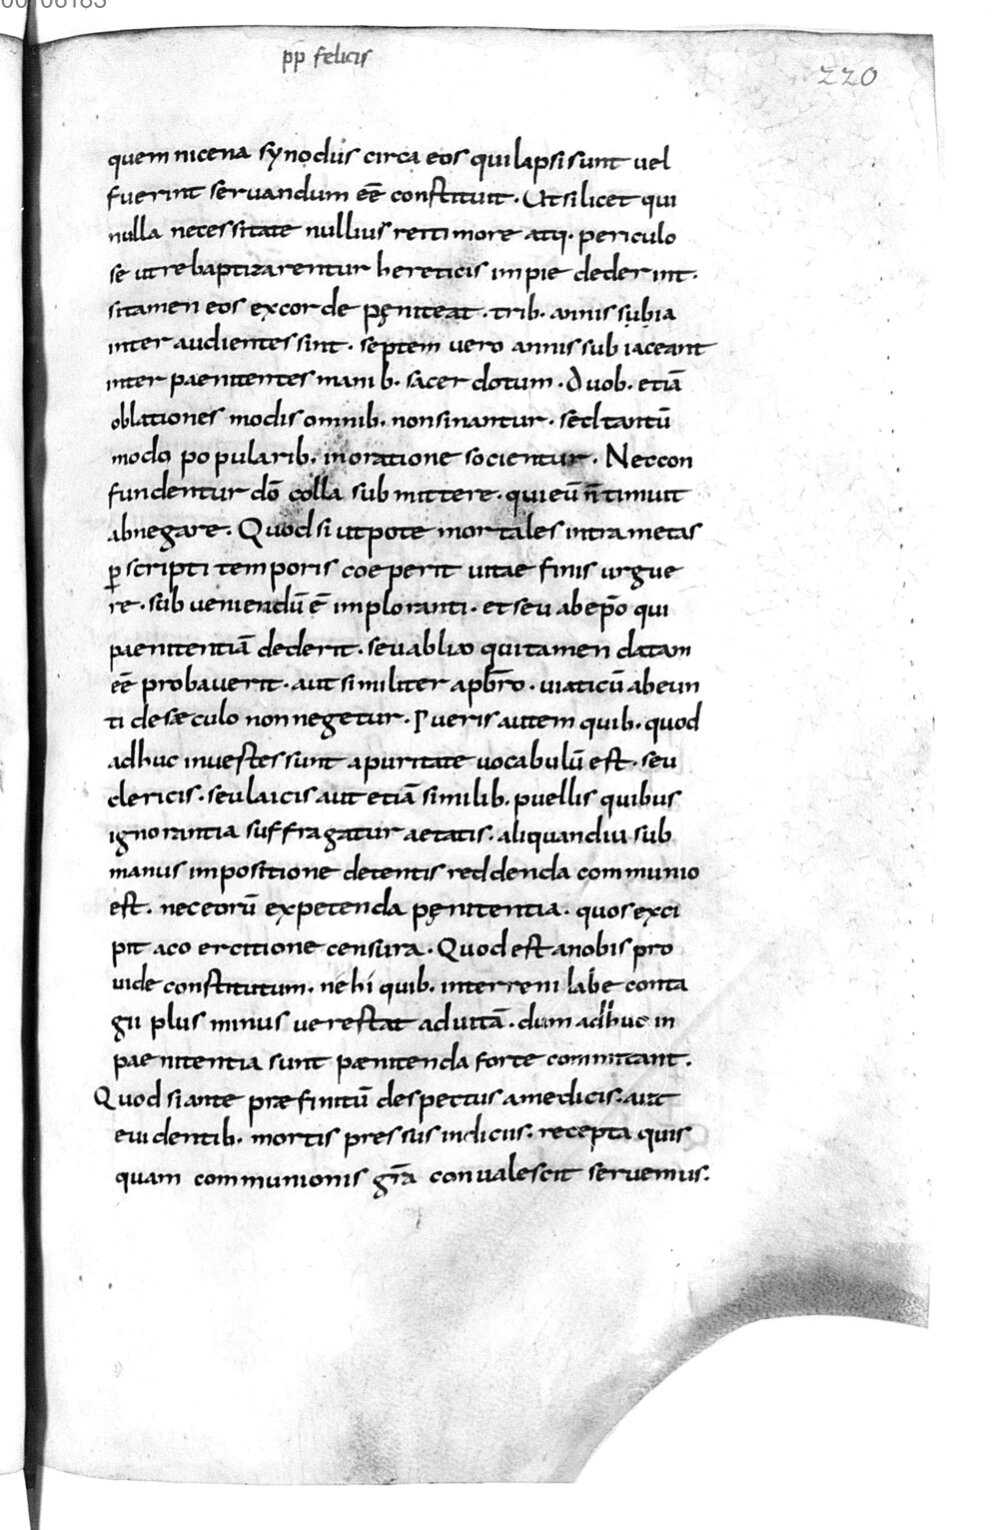 pp felicis
220
quem nicena synodus circa eos qui lapsi sunt vel
fuerint servandum eē constituit. Ut silicet qui
nulla necessitate nullius rei timore atq. periculo
se ut rebaptizarentur hereticis impie dederint.
si tamen eos excorde pęniteat. trib. annis subia
inter audientes sint. septem vero annis sub iaceant
inter paenitentes manib. sacerdotum. duob. etiā
oblationes modis omnib. non sinantur. sed tantū
modo popularib. in oratione socientur. Nec con
fundentur dō colla submittere. qui eū n̄ timuit
abnegare. Quod si utpote mortales intra metas
p̱scripti temporis coeperit vitae finis urgue
re. sub veniendū ē imploranti. et seu ab ep̄o qui
paenitentiā dederit. seu ab alio qui tamen datam
eē probaverit. aut similiter a pb̄ro. viaticū abeun
ti de sæculo non negetur. Pueris autem quib. quod
adhuc investes sunt a puritate vocabulū est. seu
clericis. seu laicis aut etiā similib. puellis quibus
ignorantia suffragatur aetatis. aliquandiu sub
manus impositione detentis reddenda communio
est. nec eorū expetenda pęnitentia. quos exci
pit a coercitione censura. Quod est a nobis pro
vide constitutum. ne hi quib. inter reni labe conta
gii plus minusve restat ad vitā. dum adhuc in
paenitentia sunt pænitenda forte committant.
Quod si ante præfinitū despectus a medicis. aut
evidentib. mortis pressus indiciis. recepta quis
quam communionis gr̄a convalescit servemus.